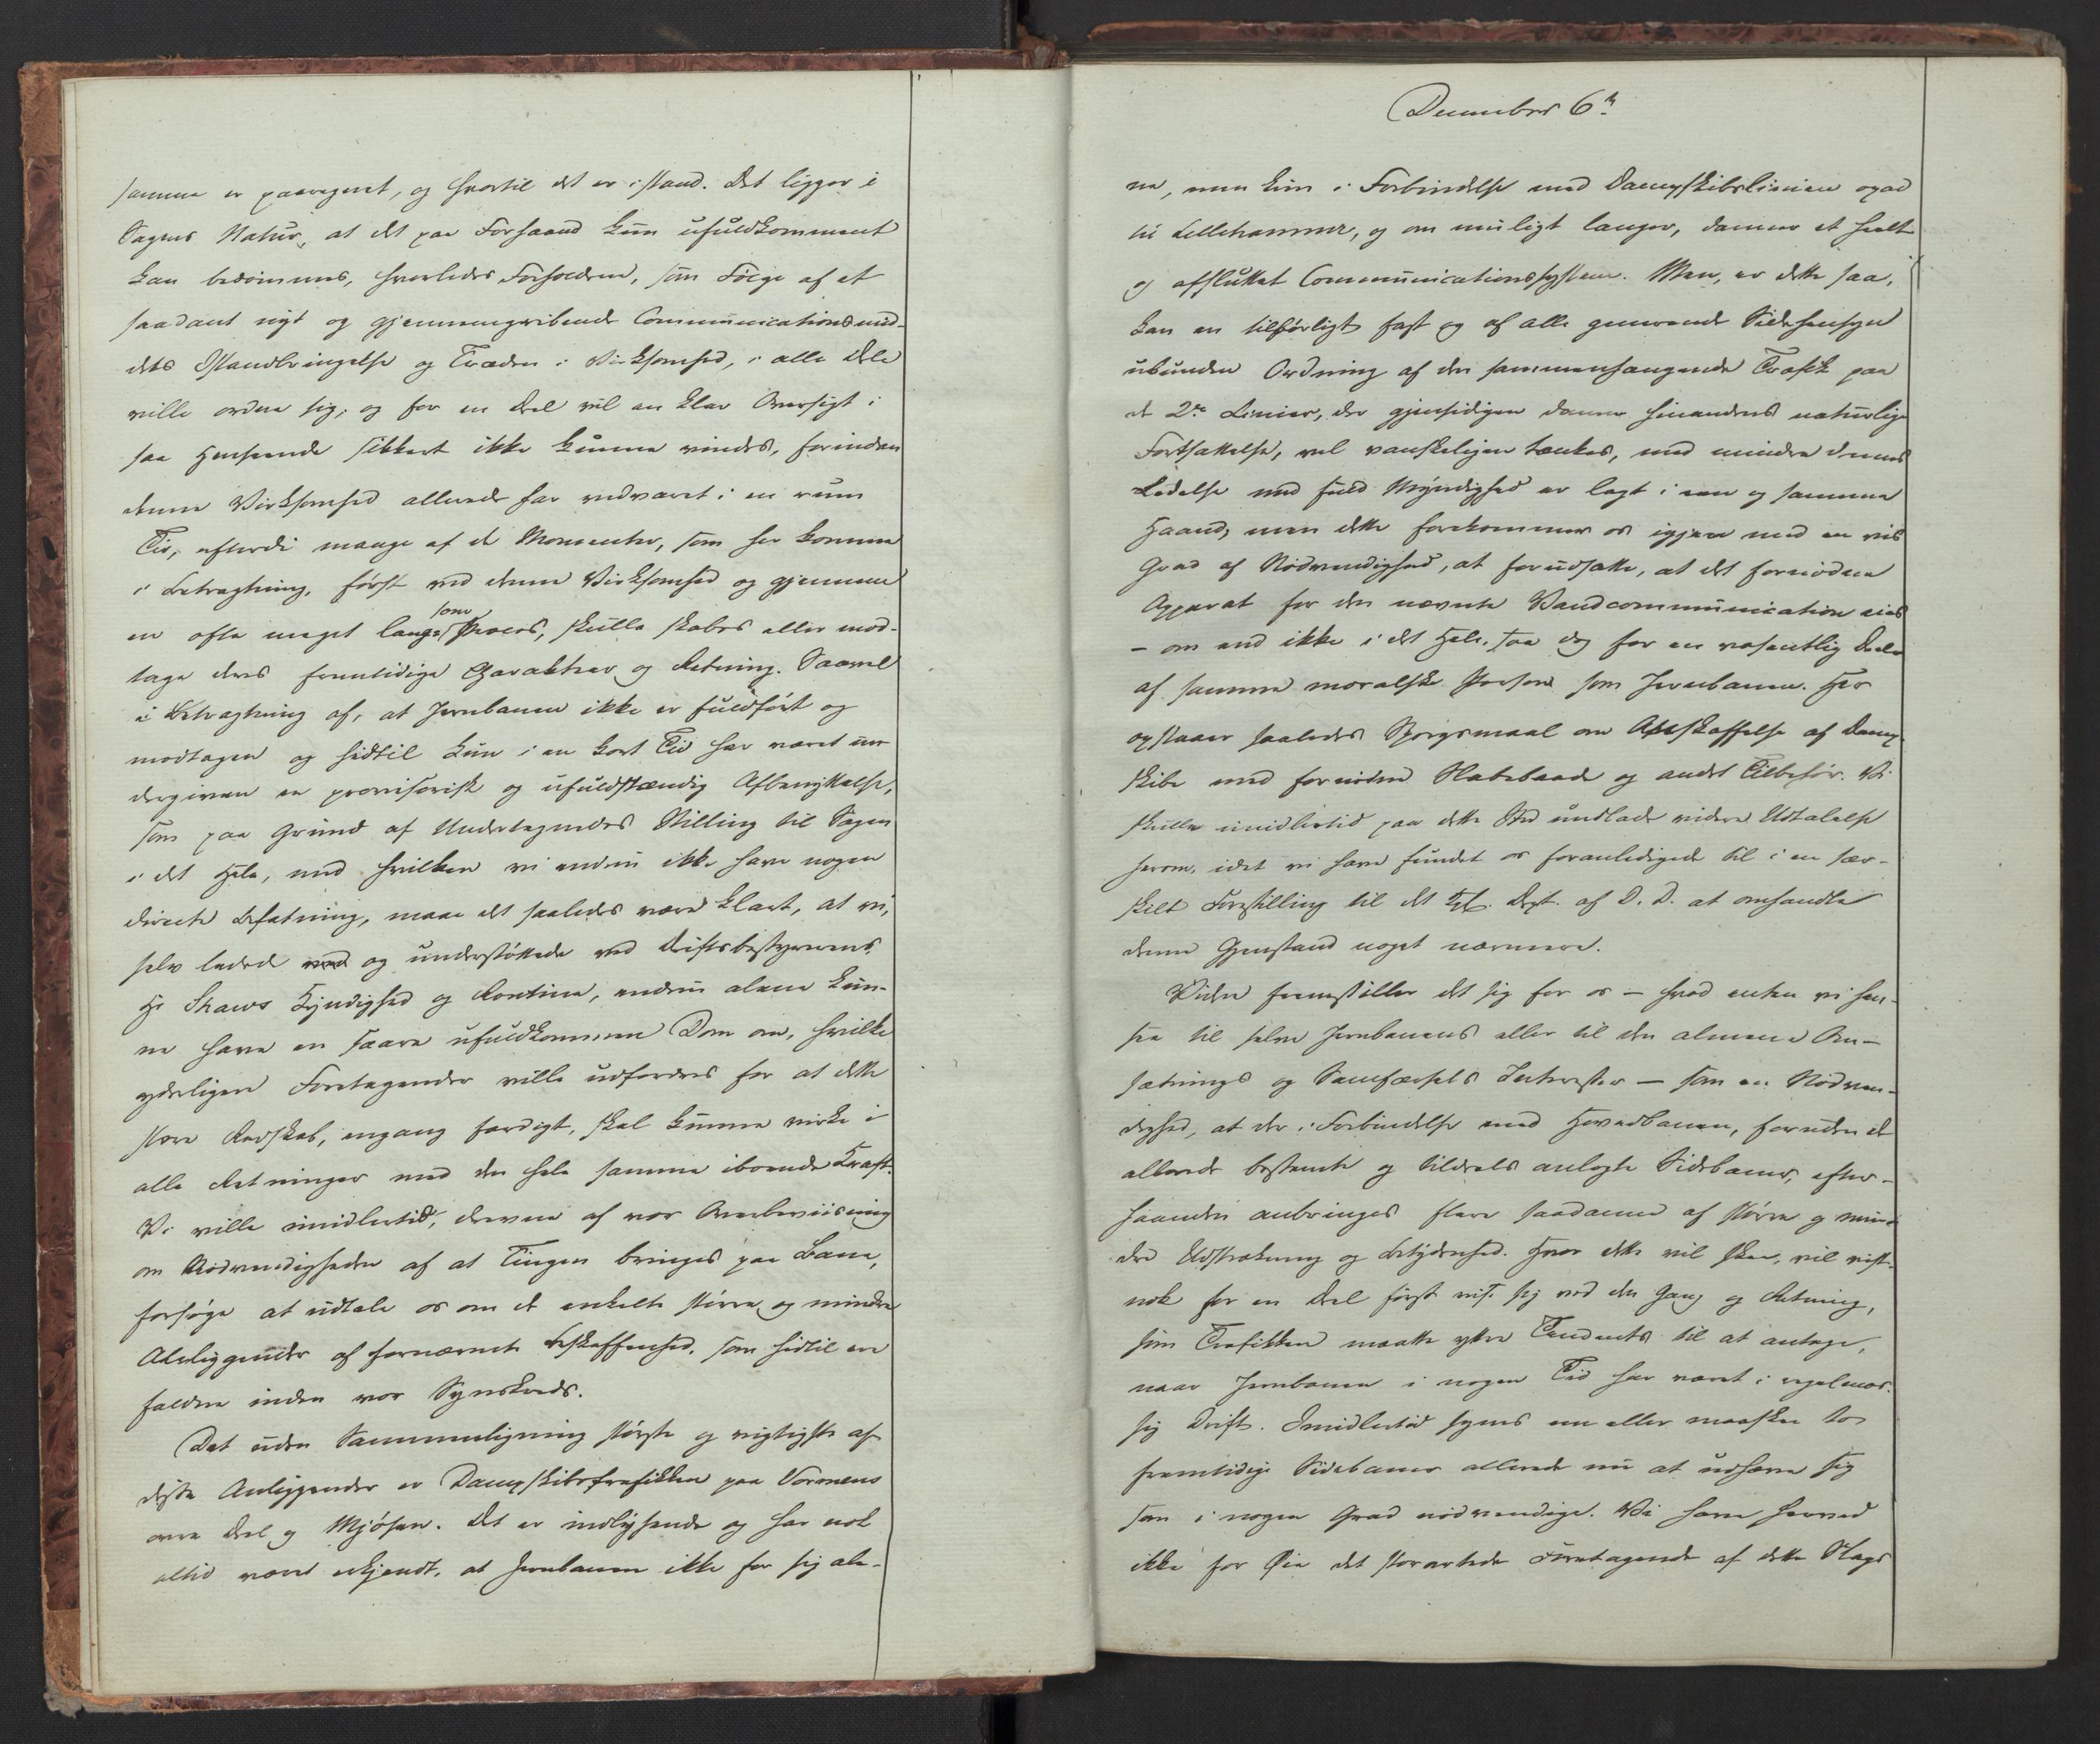 samme er paaregnet, og hvortil det er istand. Det ligger i
Sagens Natur, at det paa Forhaand kun ufuldkomment
kan bedømmes, hvorledes Forholdene, som Følge af et
saadant nyt og gjennemgribende Communicationsmid-
dels Istandbringelse og Træden i Virksomhed, i alle Dele
ville ordne sig, og for en Deel vil en klar Oversigt i
saa Henseende sikkert ikke kunne vindes, forinden
denne Virksomhed allerede har vedvaret i en rum
Tid, efterdi mange af de Momenter, som her komme
i Betragtning, først ved denne Virksomhed og gjennem
en ofte meget langsom Proces, skulle skabes eller mod-
tage deres fremtidige Charakteer og Retning. Saavel
i Betragtning af, at Jernbanen ikke er fuldført og
modtagen og hidtil kun i en kort Tid har været un-
dergiven en provisorisk og ufuldstændig Afbenyttelse,
som paa Grund af Undertegnedes Stilling til Sagen
i det Hele, med hvilken vi endnu ikke have nogen
directe Befatning, maae det saaledes være klart, at vi,
selv ledede og understøttede ved Driftsbestyrerens,
Hr Shaws Kyndighed og Routine, endnu alene kun-
ne have en saare ufuldkommen Dom om, hvilke
yderligere Foretagender ville udfordres for at dette
store Redskab, engang færdigt, skal kunne virke i
alle Retninger med den hele samme iboende Kraft.
Vi ville imidlertid, drevne af vor Overbeviisning
om Nødvendigheden af at Tingen bringes paa Bane,
forsøge at udtale os om de enkelte større og mindre
Anliggender af fornævnte Beskaffenhed, som hidtil ere
faldne inden vor Synskreds.
Det uden Sammenligning største og vigtigste af
disse Anliggender er Dampskibstrafikken paa Vormens
øvre Deel og Mjøsen. Det er indlysende og har nok
altid været erkjendt, at Jernbanen ikke for sig ale-
December 6te
ne, men kun i Forbindelse med Dampskibslinien opad
til Lillehammer, og om muligt længer, danner et heelt
og afsluttet Communicationssystem. Men, er dette saa,
kan en tilbørligt fast og af alle generende Sidehensyn
ubunden Ordning af den sammenhængende Trafik paa
de 2de Linier, der gjensidigen danne hinandens naturlige
Fortsættelse, vel vanskeligen tænkes, med mindre dennes
Ledelse med fuld Myndighed er lagt i een og samme
Haand, men dette forekommer os igjen med en vis
Grad af Nødvendighed, at forudsætte, at det fornødne
Apparat for den nævnte Vandcommunication eies
– om end ikke i det Hele, saa dog for en væsentlig Deel –
af samme moralske Person som Jernbanen. Her
opstaaer saaledes Spørgsmaal om Anskaffelse af Damp-
skibe med fornødne Slæbebaade og andet Tilbehør. Vi
skulle imidlertid paa dette Sted undlade videre Udtalelse
herom, idet vi have fundet os foranledigede til i en sær-
skilt Forestilling til det Kgl. Dept. af D. D. at omhandle
denne Gjenstand noget nærmere.
Videre fremstiller det sig for os – hvad enten vi hen-
see til selve Jernbanens eller til den almene Om-
sætnings og Samfærsels Interesser – som en Nødven-
dighed, at der i Forbindelse med Hovedbanen, foruden de
allerede bestemte og tildeels anlagte Sidebaner, efter-
haanden anbringes flere saadanne af større og min-
dre Udstrækning og Betydenhed. Hvor dette vil skee, vil vist-
nok for en Deel først vise sig ved den Gang og Retning,
som Trafikken maatte yttre Tendents til at antage,
naar Jernbanen i nogen Tid har været i regelmæs-
sig Drift. Imidlertid synes een eller maaskee to
fremtidige Sidebaner allerede nu at udhæve sig
som i nogen Grad nødvendige. Vi have herved
ikke for Øie det storartede Foretagende af dette Slags